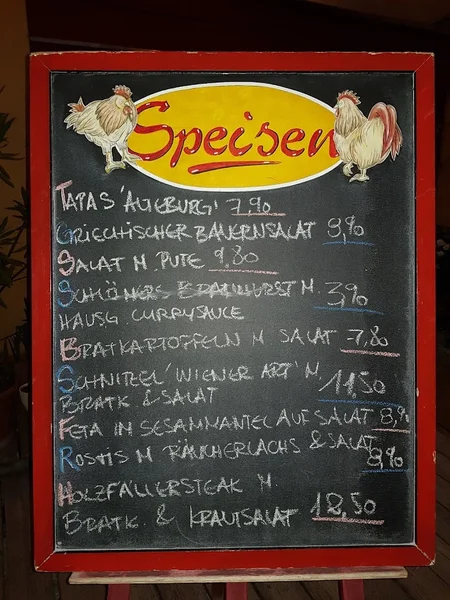 Speisen
TAPAS 'ALTEBURG' 7,90
GRIECHISCHER BAUERNSALAT 9,90
SALAT M. PUTE 9.80
SCHÖNERS BRAUWURST M. 3,90
HAUSG. CURRYSAUCE
BRATKARTOFFELN M SALAT 7,80
SCHNITZEL 'WIENER ART' M. 11,50
BRATK & SALAT
FETA IN SESAMMANTEL AUF SALAT 8,90
RÖSTIS M RÄUCHERLACHS & SALAT
8,90
HOLZFÄLLERSTEAK M
BRATK. & KRAUTSALAT 12,50